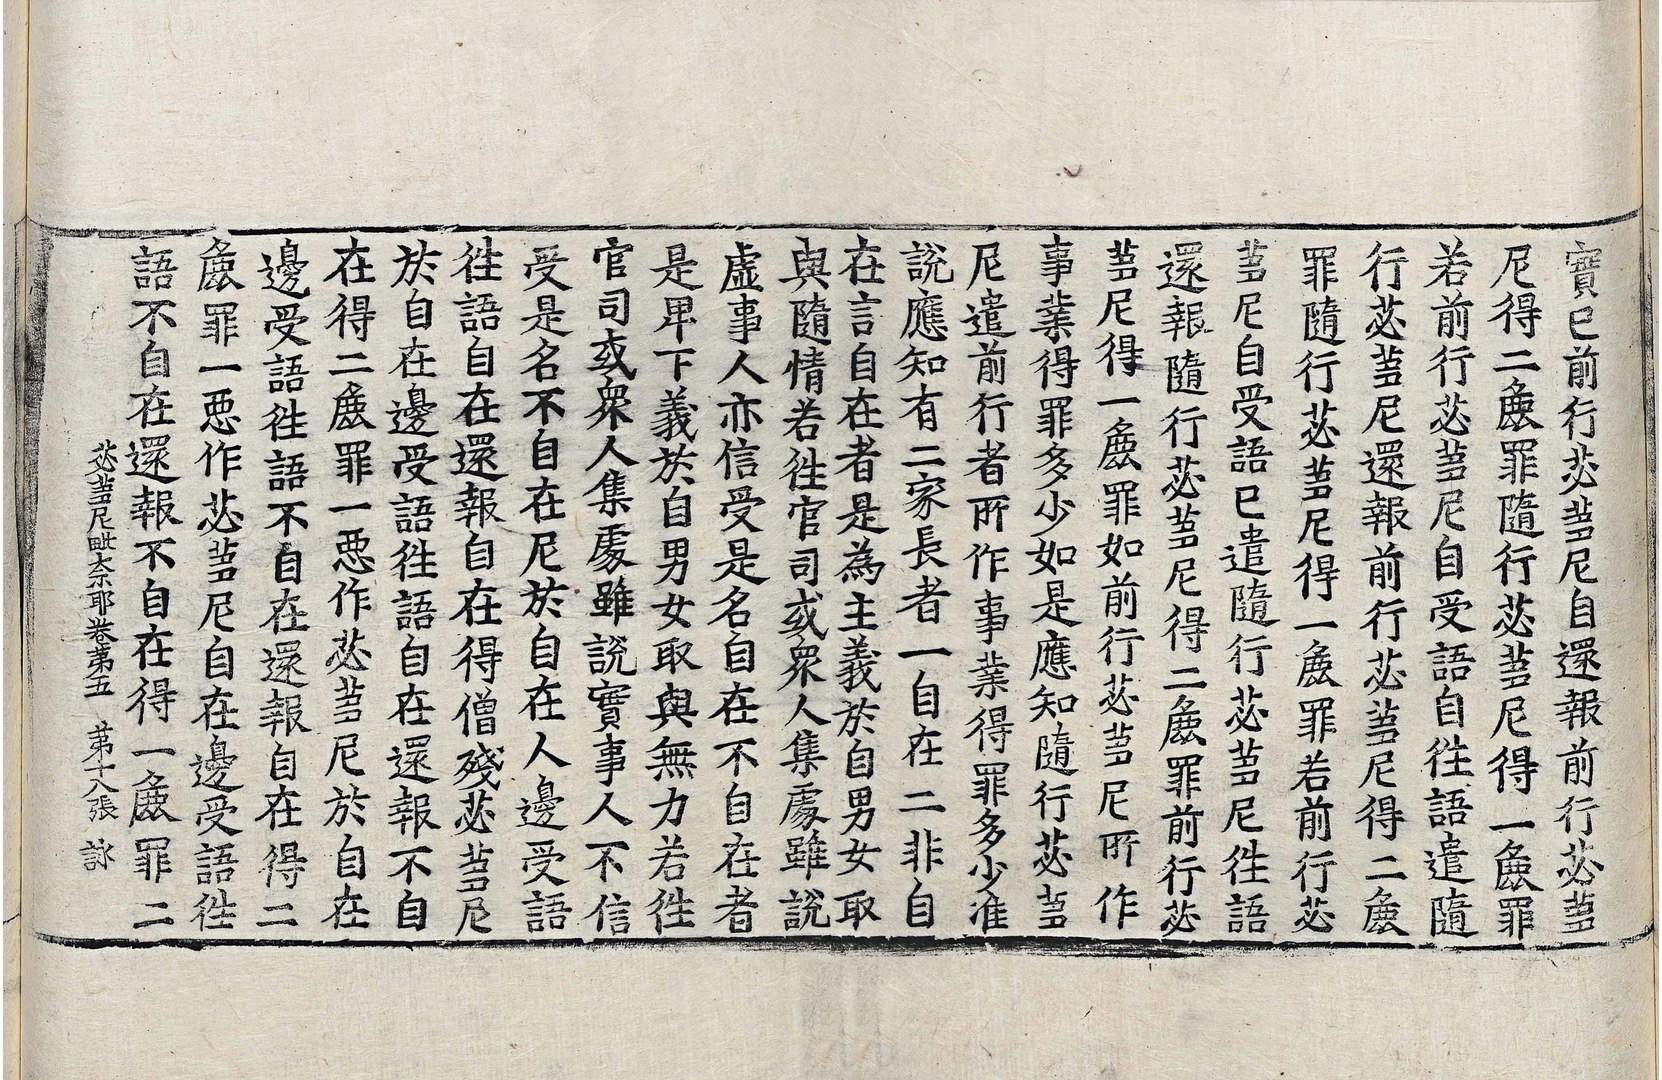 實已前行苾蒭尼自還報前行苾蒭
尼得二麁罪隨行苾蒭尼得一麁罪
若前行苾蒭尼自受語自徃語遣隨
行苾蒭尼還報前行苾蒭尼得二麁
罪隨行苾蒭尼得一麁罪若前行苾
蒭尼自受語已遣隨行苾蒭尼徃語
還報隨行苾蒭尼得二麁罪前行苾
蒭尼得一麁罪如前行苾蒭尼所作
事業得罪多少如是應知隨行苾蒭
尼遣前行者所作事業得罪多少准
說應知有二家長者一自在二非自
在言自在者是為主義於自男女取
與隨情若徃官司或衆人集處雖說
虛事人亦信受是名自在不自在者
是卑下義於自男女取與無力若徃
官司或衆人集處雖說實事人不信
受是名不自在尼於自在人邊受語
徃語自在還報自在得僧殘苾蒭尼
於自在邊受語徃語自在還報不自
在得二麁罪一惡作苾蒭尼於自在
邊受語徃語不自在還報自在得二
麁罪一惡作苾蒭尼自在邊受語徃
語不自在還報不自在得一麁罪二
苾蒭尼毗柰耶卷第五 第十八張 詠